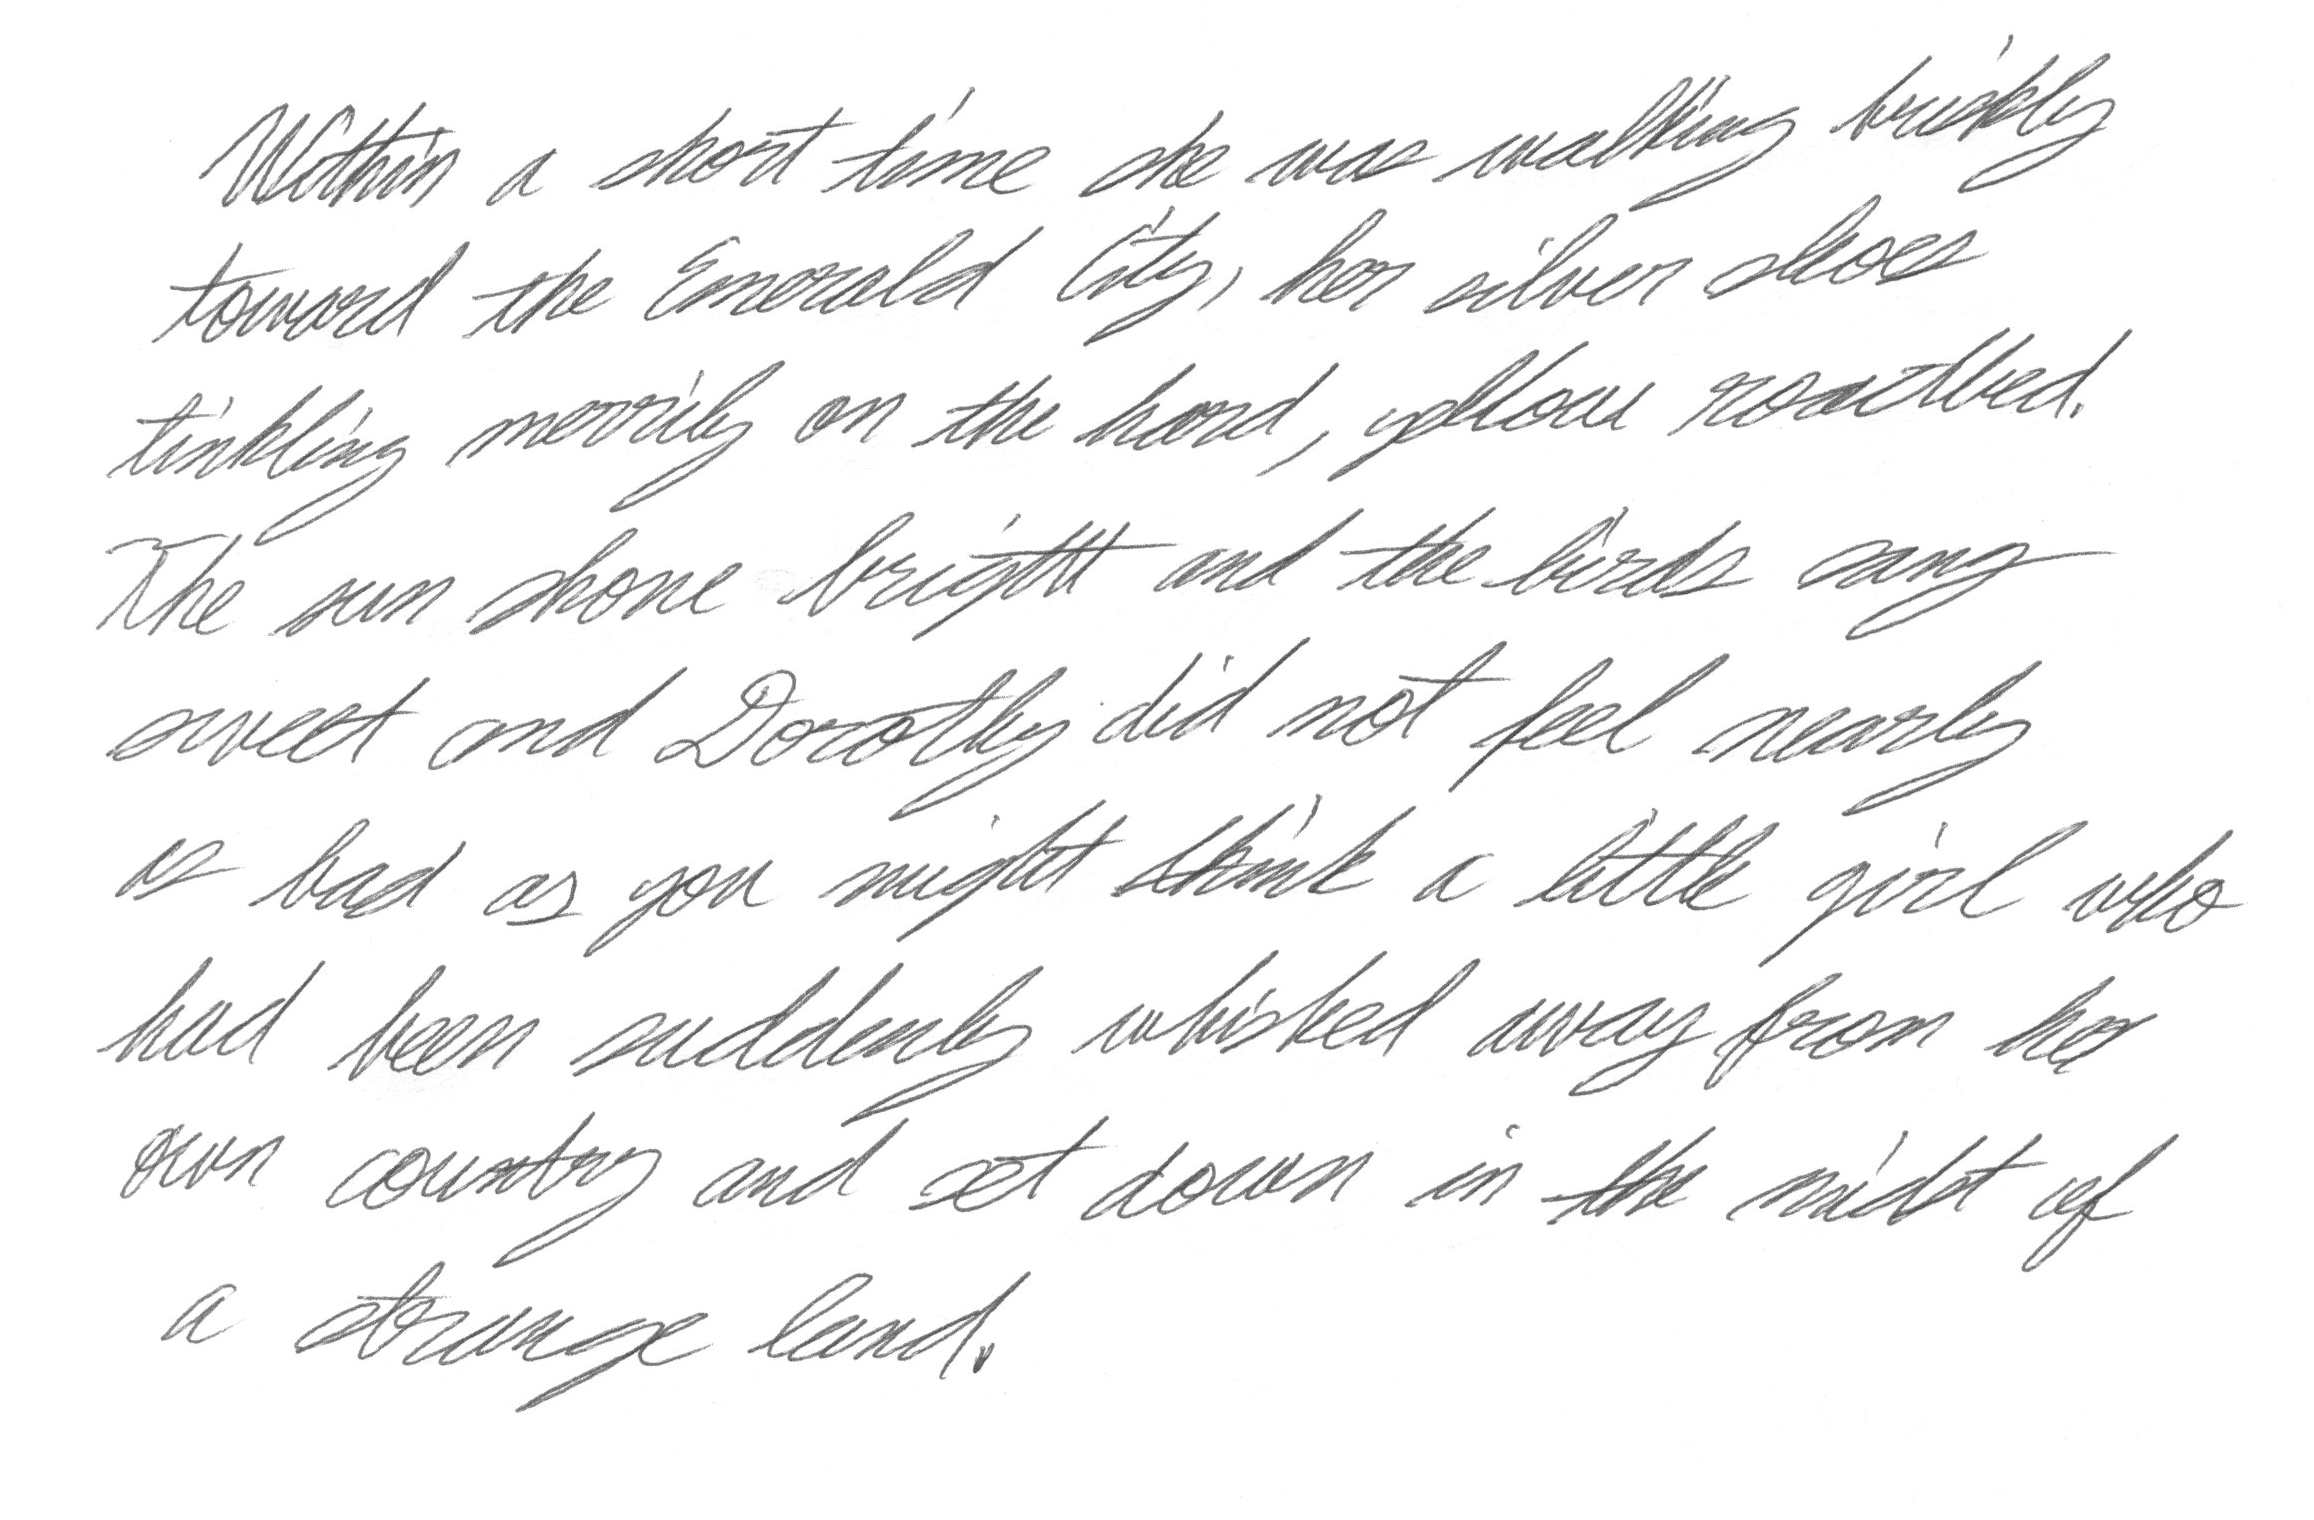 Within a short time she was walking briskly
toward the Emerald City, her silver shoes
tinkling merrily on the hard, yellow roadbed.
The sun shone bright and the birds sang
sweet and Dorothy did not feel nearly
as bad as you might think a little girl who
had been suddenly whisked away from her
own country and set down in the midst of
a strange land.